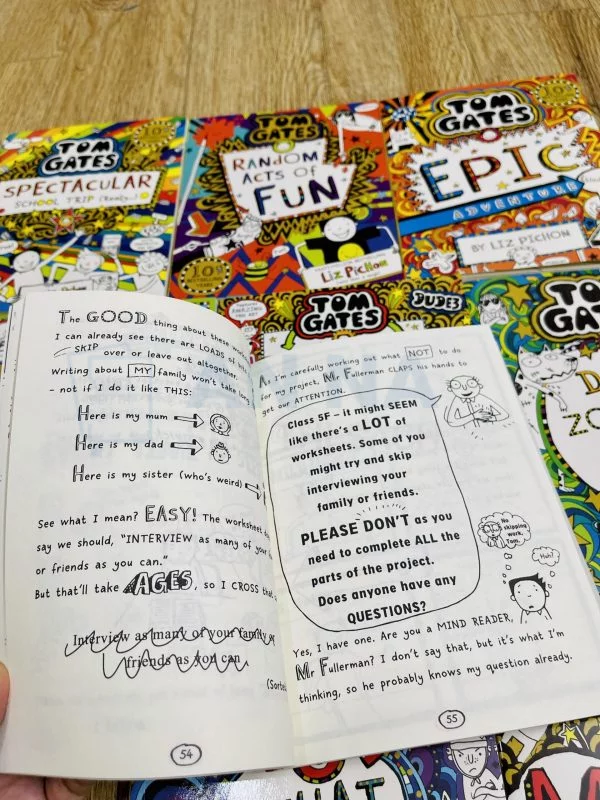 TOM GATES
SPECTACULAR
SCHOOL TRIP (Really...)
TOM GATES
RANDOM
ACTS OF
FUN
LIZ PICHON
TOM GATES
EPIC
ADVENTURE
BY LIZ PICHON
TOM GATES
DUDE3
The GOOD thing about these
I can already see there are LOADS of
SKIP over or leave out altogether.
Writing about MY family won't take long
- not if I do it like THIS:
Here is my mum
Here is my dad
Here is my sister (who's weird)
See what I mean? EASY! The worksheet
say we should, "INTERVIEW as many of your
or friends as you can."
But that'll take AGES, so I CROSS that
Interview as many of your family or
friends as you can
54
As I'm carefully working out what NOT to do
for my project, Mr Fullerman CLAPS his hands to
get our ATTENTION.
Class 5F – it might SEEM
like there's a LOT of
worksheets. Some of you
might try and skip
interviewing your
family or friends.
PLEASE DON'T as you
need to complete ALL the
parts of the project.
Does anyone have any
QUESTIONS?
No skipping work, Tom.
Huh?
Yes, I have one. Are you a MIND READER,
Mr Fullerman? I don't say that, but it's what I'm
thinking, so he probably knows my question already.
55
WHAT